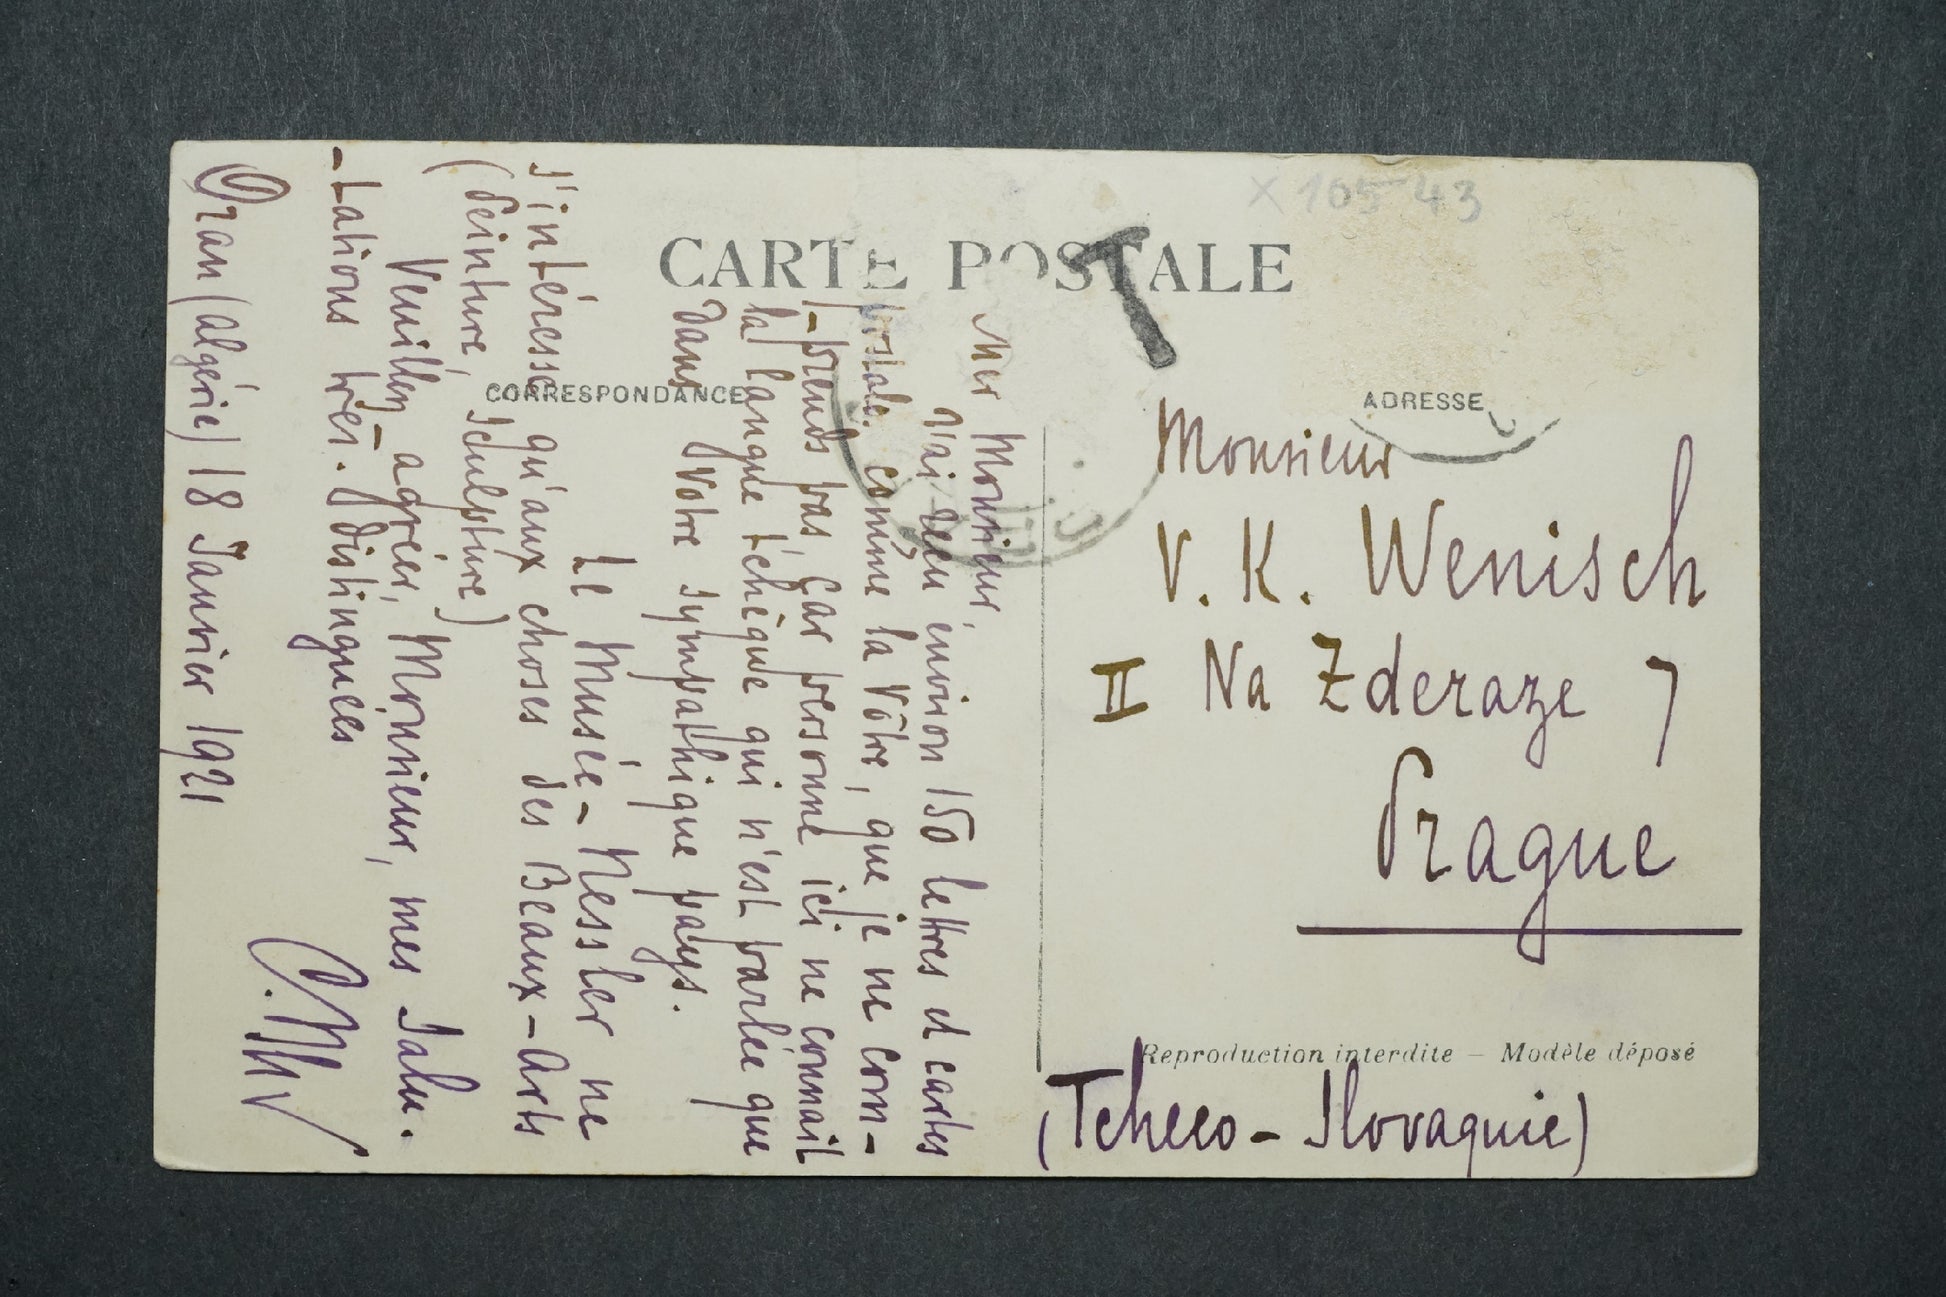 X 10543
CARTE POSTALE
T
CORRESPONDANCE
ADRESSE
Cher Monsieur,
J'ai reçu environ 150 lettres et cartes
postale. comme la vôtre, que je ne com-
-prends pas, Car personne ici ne connait
la langue tchèque qui n'est parlée que
dans votre sympathique pays.
Le Musée-Nessler ne
s'intéresse qu'aux choses des Beaux-Arts
(Peinture, Sculpture)
Veuillez-agréer, Monsieur, mes Salu.
-tations très. distinguées
Oran (Algérie) 18 Janvier 1921
Monsieur
V. K. Wenisch
II Na Zderaze 7
Prague
Reproduction interdite — Modèle déposé
(Tcheco-Slovaquie)